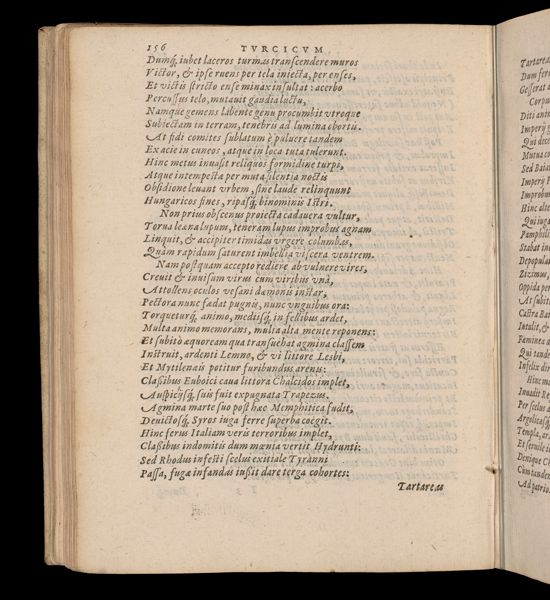 156 TVRCICVM
Dumq́; iubet laceros turmas transcendere muros
Victor, & ipse ruens per tela iniecta, per enses,
Et victis stricto ense minax insultat: acerbo
Percussus telo, mutauit gaudia luctu,
Namque gemens labente genu procumbit vtroque
Subiectam in terram, tenebris ad lumina obortis.
At fidi comites sublatum è puluere tandem
Ex acie in cuneos, atque in loca tuta tulerunt.
Hinc metus inuasit reliquos formidine turpi,
Atque intempesta per muta silentia noctis
Obsidione leuant vrbem, sine laude relinquunt
Hungaricos fines, ripasq́; binominis Istri.
Non prius obscenus proiecta cadauera vultur,
Torua leæna lupum, teneram lupus improbus agnam
Linquit, & accipiter timidas vrgere columbas,
Quàm rapidum saturent imbellia viscera ventrem.
Nam postquam accepto rediere ab vulnere vires,
Creuit & inuisum virus cum viribus vnà,
Attollens oculos vesani dæmonis instar,
Pectora nunc fœdat pugnis, nunc vnguibus ora:
Torqueturq́; animo, medijsq́; in fellibus ardet,
Multa animo memorans, multa alta mente reponens:
Et subitò æquoream qua transuehat agmina classem
Instruit, ardenti Lemno, & vi littore Lesbi,
Et Mytilenais potitur furibundus arenis:
Classibus Euboici caua littora Chalcidos implet,
Auspicijsq́; suis fuit expugnata Trapezus.
Agmina marte suo post hæc Memphitica fudit,
Deuictosq́; Syros iuga ferre superba coëgit.
Hinc ferus Italiam veris terroribus implet,
Classibus indomitis dum mœnia vertit Hydrunti:
Sed Rhodus infesti scelus exitiale Tyranni
Passa, fugæ infandas iussit dare terga cohortes:
Tartareæ
Tartareæ
Dum fer
Gesserat
Corpu
Diti anim
Imperij
Qui dece
Mutua co
Sed Baia
Imperij
Improbu
Hinc alte
Qui iuga
Pamphili
Stabat in
Depopula
Zizimus,
Oppida pe
At subit
Castra Ba
Intulit, &
Faminea
Qui tande
Infelix di
Hinc m
Inuasit Re
Per scelus
Argelicasq́
Templa, ar
Et seruile
Denique C
Cum tanden
Ad patrio